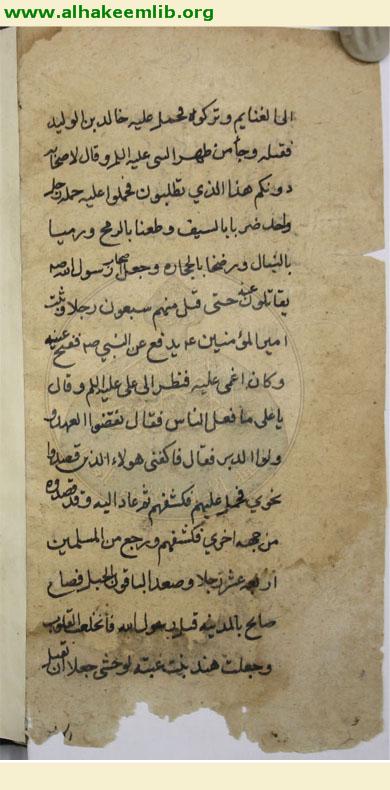 www.alhakeemlib.org
الى الغنايم وتركوه فحمل عليه خالد بن الوليد
فقتله وجآ من ظهر النبي عليه السلم وقال لاصحابه
دونكم هذا الذي تطلبون فحملوا عليه حملة رجل
واحد ضربا بالسيف وطعنا بالرمح ورميا
بالنبال ورضخا بالحجاره وجعل اصحاب رسول الله صه
يقاتلون عنه حتى قتل منهم سبعون رجلا وثبت
امير المؤمنين عه يدفع عن النبي صه ففتح عينيه
وكان اغمى عليه فنظر الى علي عليه السلم وقال
يا على ما فعل الناس فقال نقضوا العهد و
ولوا الدبر فقال فاكفنى هولاء الذين قصدوا
نحوي فحمل عليهم فكشفهم ثم عاد اليه وقد قصدوه
من جهه اخرى فكشفهم ورجع من المسلمين
اربعه عشر رجلا وصعد الباقون الجبل فصاح
صايح بالمدينه قتل رسول الله فانخلعت القلوب
وجعلت هند بنت عتبه لوحشى جعلا ان تقتل